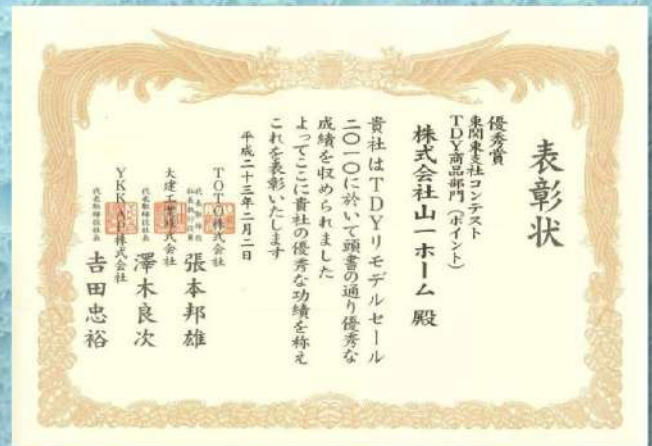 表彰状
優秀賞
東関東支社コンテスト
TDY商品部門(ポイント)
株式会社山一ホーム 殿
貴社はTDYリモデルセール
二〇一〇に於いて頭書の通り優秀な
成績を収められました
よってここに貴社の優秀な功績を称え
これを表彰いたします
平成二十三年二月二日
TOTO株式会社
代表取締役
社長執行役員
張本邦雄
大建工業株式会社
代表取締役社長
澤木良次
YKK AP株式会社
代表取締役社長
吉田忠裕